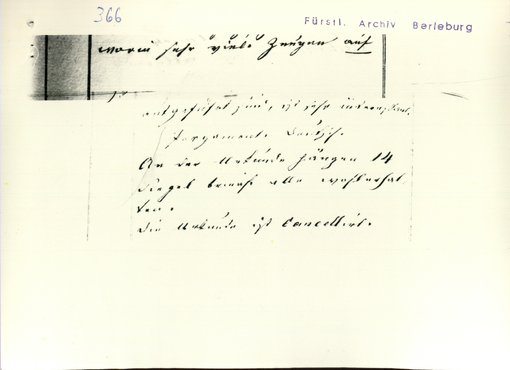 366
Fürstl. Archiv Berleburg
worin sehr viele Zeugen auf
aufgeführt sind, ist sehr interessant.
Pergament. Deutsch.
An der Urkunde hängen 14
Siegel beinah alle wohlerhal
ten.
Die Urkunde ist cancellirt.